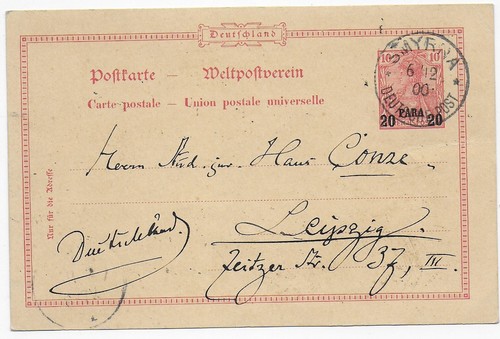 Deutschland
Postkarte — Weltpostverein
Carte postale — Union postale universelle
10 10
20 PARA 20
SMYRNA
6 12
00
DEUTSCHE POST
Nur für die Adresse
Herrn stud. jur. Hans Conze
Leipzig.
Zeitzer Str. 37, III.
Deutschland.